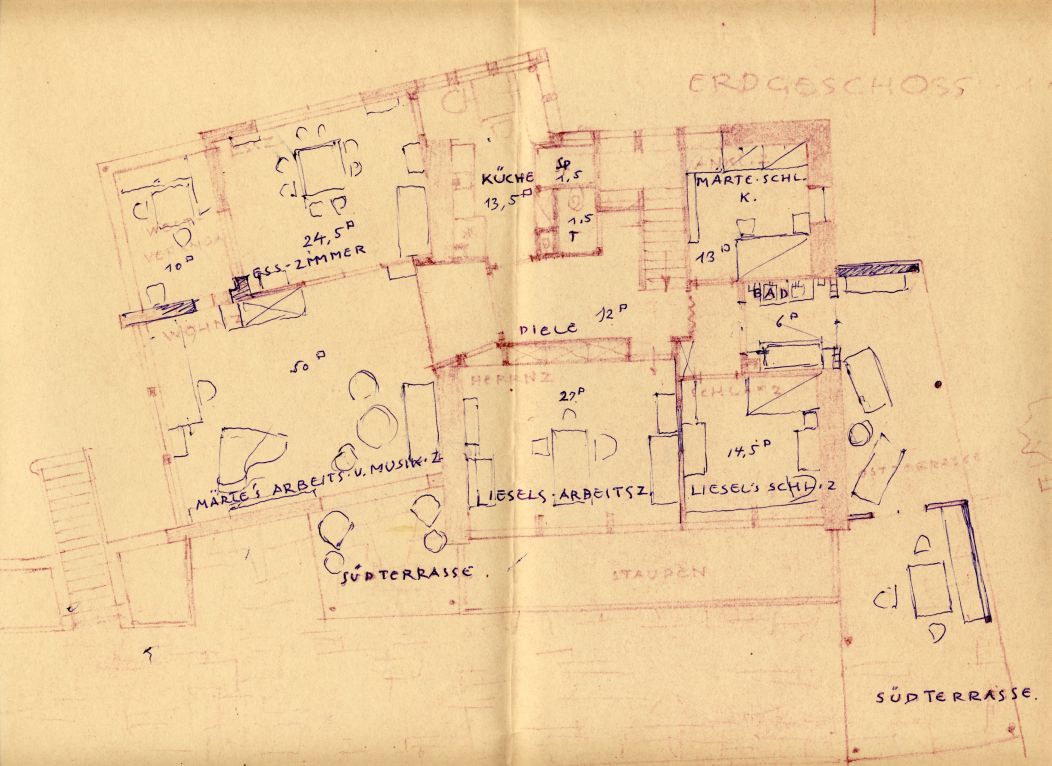 ERDGESCHOSS
KÜCHE
13,5□
SP
1,5
1,5
T
MÄRTE·SCHL.
K.
13□
24,5□
ESS-ZIMMER
10□
WOHNZ
BAD
6□
DIELE
12□
50□
HERRNZ
27□
SCHLAFZ
14,5□
MÄRTE'S ARBEITS·U.MUSIK·Z
LIESELS·ARBEITSZ.
LIESEL'S SCHL·Z
OSTTERRASSE
SÜDTERRASSE.
STAUDEN
SÜDTERRASSE.